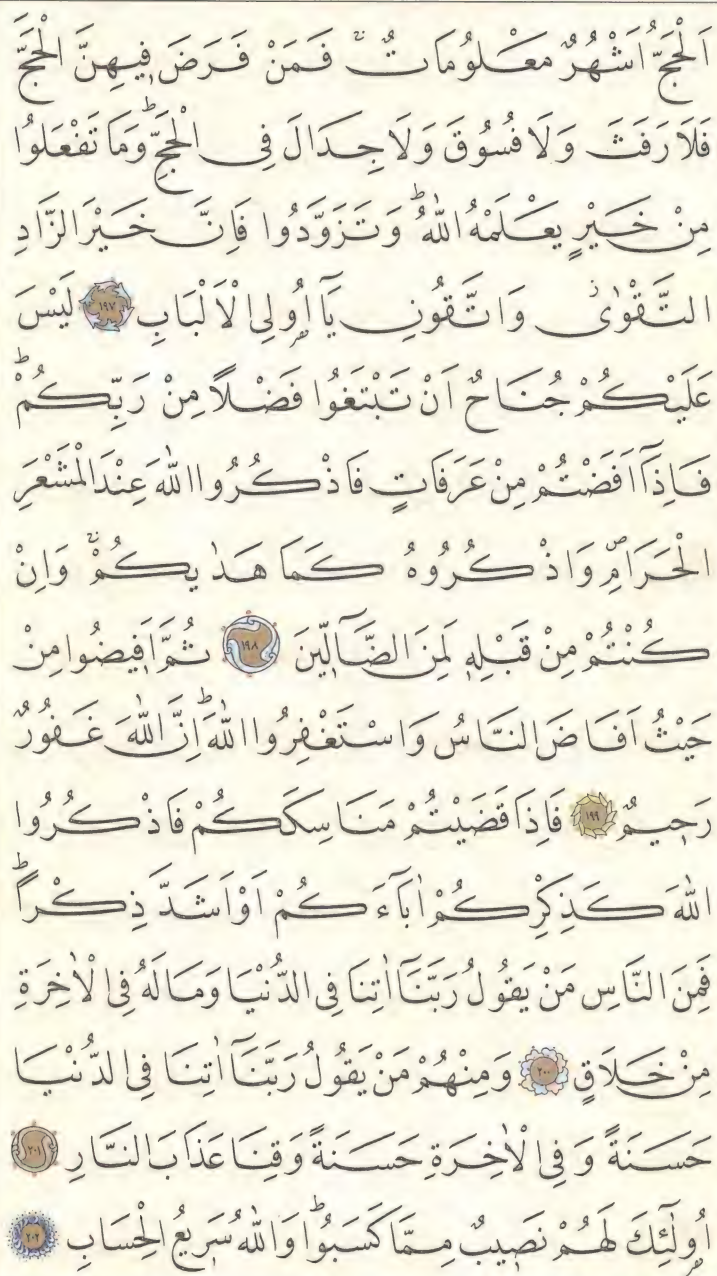 اَلْحَجُّ اَشْهُرٌ مَعْلُومَاتٌۚ فَمَنْ فَرَضَ فٖيهِنَّ الْحَجَّ
فَلَا رَفَثَ وَلَا فُسُوقَ وَلَا جِدَالَ فِي الْحَجِّؕ وَمَا تَفْعَلُوا
مِنْ خَيْرٍ يَعْلَمْهُ اللّٰهُؕ وَتَزَوَّدُوا فَاِنَّ خَيْرَ الزَّادِ
التَّقْوٰىؗ وَاتَّقُونِ يَٓا اُو۬لِي الْاَلْبَابِ ﴿١٩٧﴾ لَيْسَ
عَلَيْكُمْ جُنَاحٌ اَنْ تَبْتَغُوا فَضْلًا مِنْ رَبِّكُمْؕ
فَاِذَٓا اَفَضْتُمْ مِنْ عَرَفَاتٍ فَاذْكُرُوا اللّٰهَ عِنْدَ الْمَشْعَرِ
الْحَرَامِࣕ وَاذْكُرُوهُ كَمَا هَدٰيكُمْۚ وَاِنْ
كُنْتُمْ مِنْ قَبْلِهٖ لَمِنَ الضَّٓالّٖينَ ﴿١٩٨﴾ ثُمَّ اَفٖيضُوا مِنْ
حَيْثُ اَفَاضَ النَّاسُ وَاسْتَغْفِرُوا اللّٰهَؕ اِنَّ اللّٰهَ غَفُورٌ
رَحٖيمٌ ﴿١٩٩﴾ فَاِذَا قَضَيْتُمْ مَنَاسِكَكُمْ فَاذْكُرُوا
اللّٰهَ كَذِكْرِكُمْ اٰبَٓاءَكُمْ اَوْ اَشَدَّ ذِكْرًاؕ
فَمِنَ النَّاسِ مَنْ يَقُولُ رَبَّنَٓا اٰتِنَا فِي الدُّنْيَا وَمَا لَهُ فِي الْاٰخِرَةِ
مِنْ خَلَاقٍ ﴿٢٠٠﴾ وَمِنْهُمْ مَنْ يَقُولُ رَبَّنَٓا اٰتِنَا فِي الدُّنْيَا
حَسَنَةً وَفِي الْاٰخِرَةِ حَسَنَةً وَقِنَا عَذَابَ النَّارِ ﴿٢٠١﴾
اُو۬لٰٓئِكَ لَهُمْ نَصٖيبٌ مِمَّا كَسَبُواؕ وَاللّٰهُ سَرٖيعُ الْحِسَابِ ﴿٢٠٢﴾